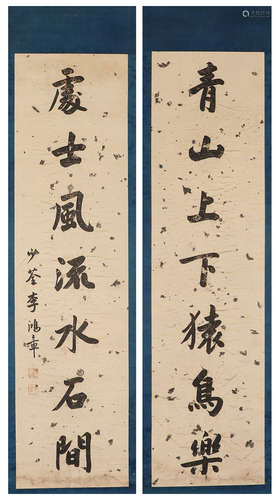 青山上下猿鳥樂
處士風流水石間
少荃李鴻章